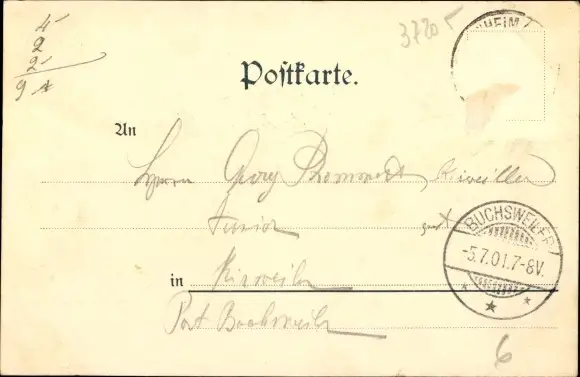 4
2
2
9
3720
HEIM
Postkarte.
An
Herrn Georg
Junior
in Kirweiler
Post Buchsweiler
BUCHSWEILER
-5.7.01.7-8V.
6